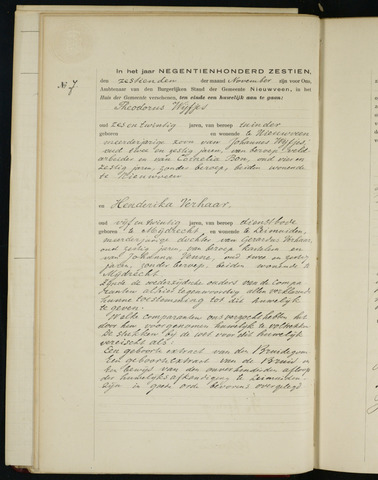 In het jaar NEGENTIENHONDERD ZESTIEN,
den zestienden der maand November zijn voor Ons,
Ambtenaar van den Burgerlijken Stand der Gemeente Nieuwveen, in het
Huis der Gemeente verschenen, ten einde een huwelijk aan te gaan:
No 7.
Theodorus Wijfjes
oud zes en twintig jaren, van beroep tuinder
geboren en wonende te Nieuwveen
meerderjarige zoon van Johannes Wijfjes,
oud twee en zestig jaren, van beroep veld-
arbeider en van Cornelia Bon, oud vier en
zestig jaren, zonder beroep, beiden wonende
te Nieuwveen
en Henderika Verhaar,
oud vijf en twintig jaren, van beroep dienstbode
geboren te Mijdrecht en wonende te Leimuiden,
meerderjarige dochter van Gerardus Verhaar,
oud zestig jaren, van beroep
van Johanna oud twee en zestig
jaren, zonder beroep, beiden wonende te
Mijdrecht.
Zijnde de wederzijdsche ouders van de compa
ranten alhier tegenwoordig allen verklarende
hunne toestemming tot dit huwelijk
te geven.
Welke comparanten ons verzocht hebben het
door hen voorgenomen huwelijk te voltrekken
De stukken bij de wet voor dit huwelijk
vereischt als:
Een geboorte extract van den Bruidegom
Een geboorte extract van de Bruid en
Een bewijs van den onverhinderden afloop
der huwelijksafkondiging te Leimuiden
zijn in goede orde bevonden overgelegd